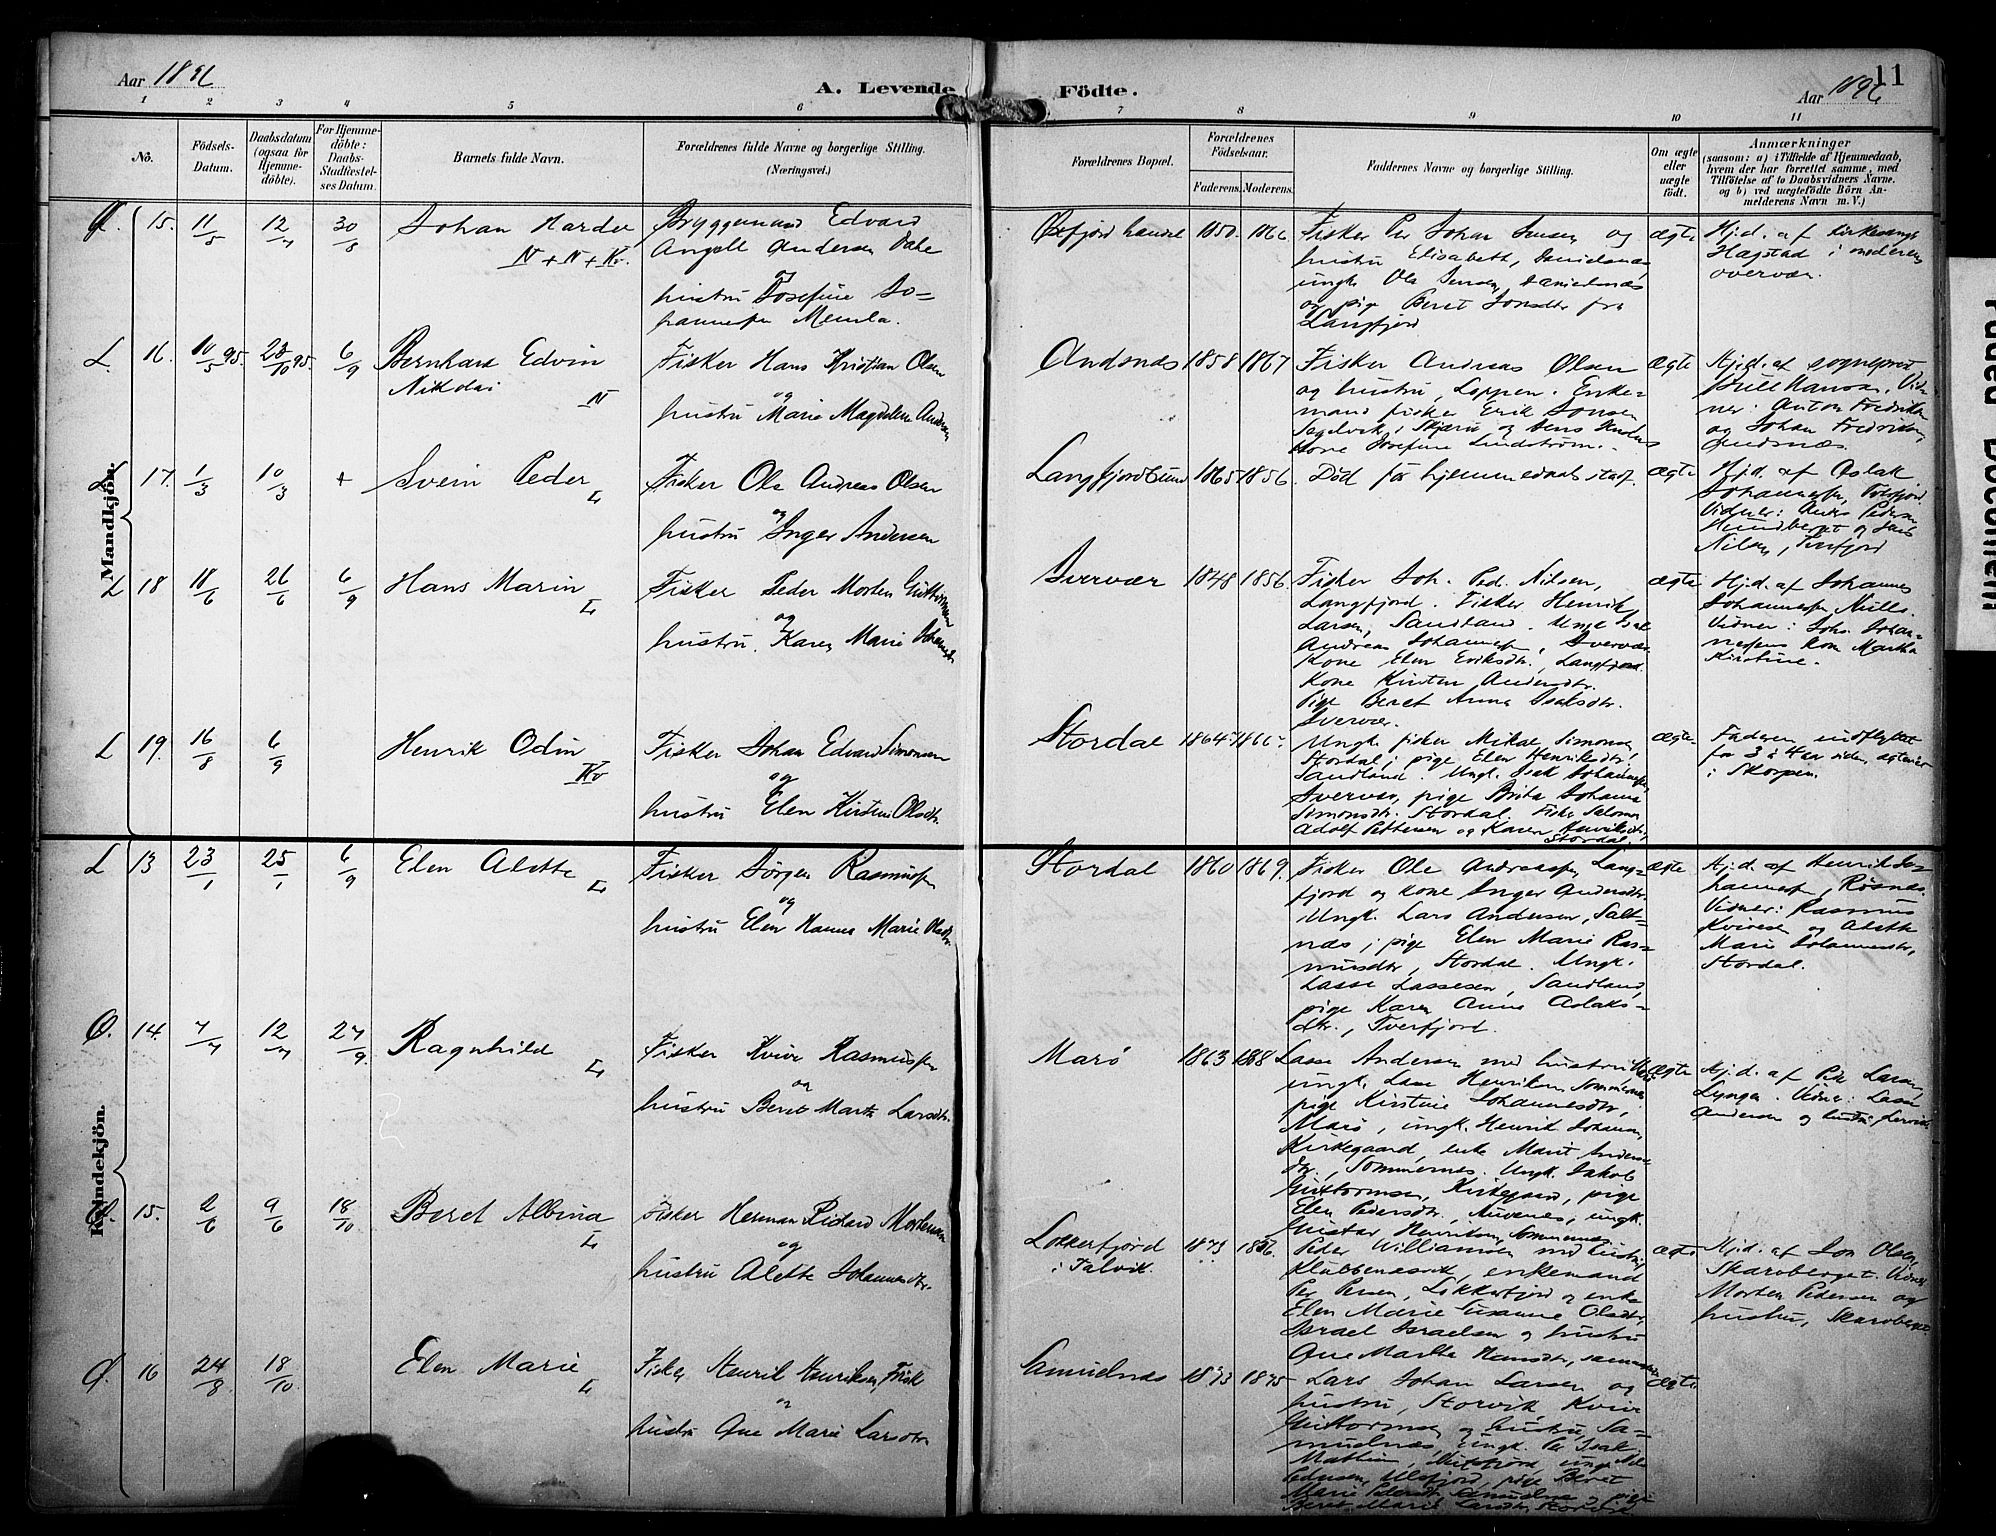 Aar 1896
A. Levende Födte.
11
Aar 1896
1 2 3 4 5 6 7 8 9 10 11
No.
Födsels-
Datum.
Daabsdatum
(ogsaa for
Hjemme-
döbte).
For Hjemme-
döbte:
Daabs-
Stadfæstel-
ses Datum.
Barnets fulde Navn.
Forældrenes fulde Navne og borgerlige Stilling.
(Næringsvei.)
Forældrenes Bopæl.
Forældrenes
Födselsaar.
Faderens.
Moderens.
Faddernes Navne og borgerlige Stilling.
Om ægte
eller
uægte
født.
Anmærkninger
(saasom: a) i Tilfælde af Hjemmedaab,
hvem der har forrettet samme, med
Tilföielse af to Daabsvidners Navne.
og b) ved uægtefödte Börn An-
melderens Navn m. V.)
Mandkjön.
15. 11/5 12/7 30/8 Johan Harder
N + N + Kv.
Bryggemand Edvard
Angell Andersen Dahl
og
hustru Josefine Jo-
hannesen
1850. 1866
Fisker Per Johan Jensen og
hustru Elisabeth,
ungk. Ole Jensen,
og pige Beret Jonsdtr fra
Langfjord
ægte
Hj.d. af kirkesanger
Hagstad i moderens
overvær.
L. 16. 10/5 95. 23/10 95. 6/9 Bernhard Edvin
Nikolai
N
Fisker Hans Kristian Olsen
og
hustru Marie Magdalene Andersen
Andsnæs 1858 1867
Fisker Andreas Olsen
og hustru, Loppen. Enke-
mand fisker Erik Jonsen
kone Josefine Lindstrøm.
ægte
Hj.d. af sognepræst
Vid-
ner: Anton Fredriksen
og Johan Fredriksen,
Andsnæs.
L 17. 1/3 10/3 + Svein Peder
L
Fisker Ole Andreas Olsen
og
hustru Inger Andersen
Langfjordbund 1865 1856.
Död för hjemmedaabstadf.
ægte
Hjd. af Aslak
Johannesen,
Vidner: Anders Pedersen
og
Nilsen, Tverfjord
L 18 18/6 26/6 6/9 Hans Marin
L
Fisker Peder Morten Guttormsen
og
hustru. Karen Marie
Svervær 1848 1856.
Fisker Joh. Ped. Nilsen,
Langfjord. Fisker Henrik
Larsen, Sandland. Ungk. Isak
Andreas Johannesen, Svervær.
Kone Elen Eriksdtr., Langfjord.
Kone Kirsten Andersdtr.
Pige Beret Anna Isaksdtr.
Svervær.
ægte
Hj.d. af Johannes
Johannesen
Vidner: Johs. Johan-
nesens kone Martha
Kirstine.
L 19. 16/8 6/9 Henrik Odin
Kv
Fisker Johan Edvard Simonsen
og
hustru Elen Kirstine Olsdtr.
Stordal 1864
Ungk. fisker Mikal Simonsen,
Stordal; pige Elen Henriksdtr,
Sandland. Ungk. Isak Johannesen,
Sverver, pige Brita Johanna
Simonsdtr. Stordal. Fisker Salomon
Adolf Pettersen og Karen Henriksdtr,
Stordal.
ægte
Faderen indflyttet
for 3 à 4 aar siden,
i Skorpen.
Kvindekjön.
L 13 23/1 25/1 6/9 Elen Alette
L
Fisker Jörgen Rasmussen
og
hustru Elen Hanna Marie Olsdtr.
Stordal 1860 1869.
Fisker Ole Andreassen, Lang-
fjord og kone Inger Andersdtr.
Ungk. Lars Andersen, Salt-
næs; pige Elen Marie Ras-
musdtr, Stordal. Ungk.
Lasse Lassesen, Sandland,
pige Karen Anne Aslaks-
dtr., Tverfjord.
ægte
Hj.d. af Henrik Jo-
hannesen, Røsnæs.
Vidner: Rasmus
og Alette
Marie Johannesdtr,
Stordal.
14. 7/7 12/7 27/9. Ragnhild
L
Fisker Kvive Rasmussen
og
hustru Beret Marth. Larsdtr.
Marö 1863 1868
Lasse Andersen med hustru
ungk. Lasse Henriksen Sommernes,
pige Kirstine Johannesdtr,
Marö, ungk. Henrik Johansen,
Kirkegaard, enke Marit Anders-
dtr., Sommernes. Ungk. Jakob
Guttormsen, Kirkegaard, pige
Elen Pedersdtr, ungk.
Gustav Henriksen, Sommernes
ægte
Hj.d. af Peder Larsen,
Lyngen. Vidner: Lasse
Andersen og hustru
15. 2/6 9/6 18/10 Beret Albina
L
Fisker Herman Richard Mortensen
og
hustru Alette Johannesdtr.
Lokkerfjord
i Talvik.
1873 1866
Peder Williamsen med hustru,
Klubbenesvik, enkemand
Per Persen, Lokkerfjord og enke
Elen Marie Susanne Olsdtr,
Israel Israelsen og hustru
Ane Marthe
ægte
Hj.d. af Jon Olsen,
Skaroberget. Vidner
Morten Pedersen og
hustru, Skaroberget
16 24/8. 18/10 Elen Marie
L
Fisker Henrik Henriksen,
og
hustru Ane Marie Larsdtr
Samuelnæs 1873 1875
Lars Johan Larsen og
hustru, Storvik. Kvive
Guttormsen og hustru, Sa-
muelnæs, ungk. Per Isak
pige Beret
Marie Pedersdtr og pige
Beret Marie Larsdtr, Storvik
ægte
Faded Document